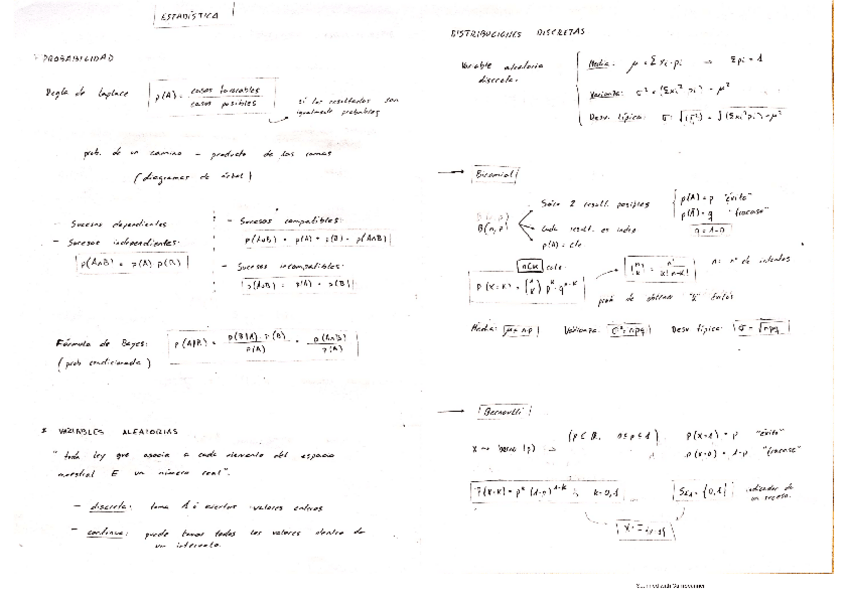 ESTADÍSTICA
PROBABILIDAD
Regla de Laplace p(A) = casos favorables / casos posibles
si los resultados son
igualmente probables
prob. de un camino = producto de las ramas
(diagramas de árbol)
- Sucesos dependientes
- Sucesos independientes:
p(A∩B) = p(A) p(B)
- Sucesos compatibles:
p(A∪B) = p(A) + p(B) - p(A∩B)
- Sucesos incompatibles:
p(A∪B) = p(A) + p(B)
Fórmula de Bayes:
(prob condicionada)
VARIABLES ALEATORIAS
"toda ley que asocia a cada elemento del espacio
muestral E un número real".
- discreta: toma
valores
- continua: puede tomar todos los valores dentro de
un intervalo.
DISTRIBUCIONES DISCRETAS
Variable aleatoria
discreta.
Media: μ = Σ xi·pi → Σpi = 1
Varianza: σ² = (Σxi² pi) - μ²
Desv. típica: σ = √(σ²) = √(Σxi² pi) - μ²
→ Binomial
B(n,p)
Sólo 2 result. posibles
p(A) = p "éxito"
p(Ā) = q "fracaso"
q = 1-p
Cada result. es indep
p(A) = cte
nCr
n: nº de intentos
prob de obtener "k" éxitos
Media: μ = np Varianza: σ² = npq Desv típica: σ = √npq
→ Bernoulli
p(X=1) = p "éxito"
p(X=0) = 1-p "fracaso"
P(X=k) = p^k (1-p)^1-k ; k=0,1